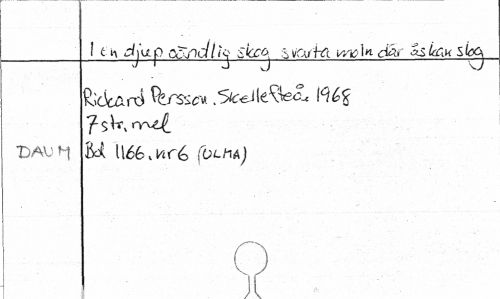 I en djup oändlig skog svarta moln där åskan slog
Rickard Persson. Skellefteå. 1968
7 str. mel
DAUM Bd 1166. nr 6 (ULMA)